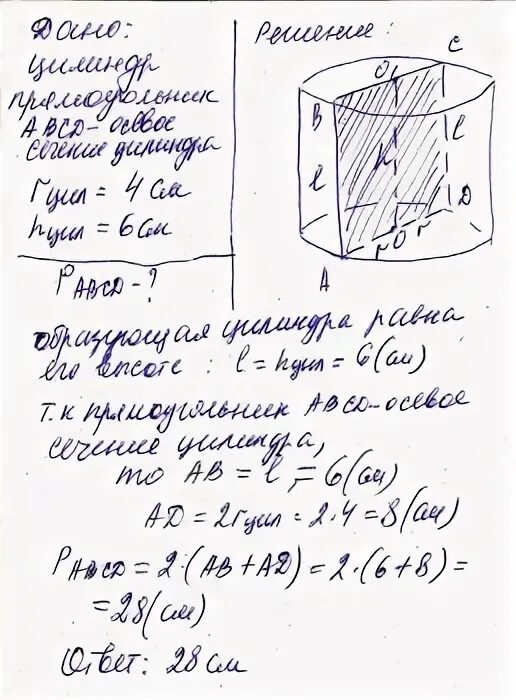 Дано:
цилиндр
прямоугольник
ABCD - осевое
сечение цилиндра
rцил = 4 см
hцил = 6 см
P ABCD - ?
Решение:
C
O
B
h
l
l
D
r
O
r
A
образующая цилиндра равна
его высоте: l = hцил = 6 (см)
т.к прямоугольник ABCD - осевое
сечение цилиндра,
то AB = l = 6 (см)
AD = 2rцил = 2·4 = 8 (см)
P ABCD = 2·(AB + AD) = 2·(6+8) =
= 28 (см)
Ответ: 28 см